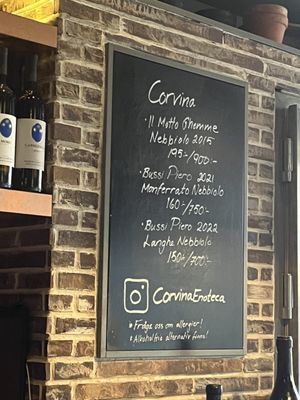 Corvina
· Il Motto Ghemme
Nebbiolo 2015
195:-/900:-
· Bussi Piero 2021
Monferrato Nebbiolo
160:-/750:-
· Bussi Piero 2022
Langhe Nebbiolo
150:-/700:-
CorvinaEnoteca
* Fråga oss om allergier!
* Alkoholfria alternativ finns!